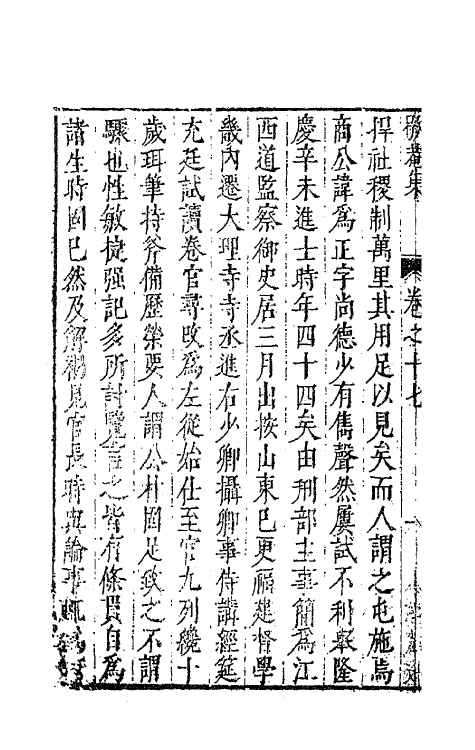 卷之十七
捍社稷制萬里其用足以見矣而人謂之屯施焉
商公諱爲正字尚德少有雋聲然屢試不利舉隆
慶辛未進士時年四十四矣由刑部主事簡爲江
西道監察御史居三月出按山東已更福建督學
畿內遷大理寺寺丞進右少卿攝卿事侍講經筵
充廷試讀卷官尋改爲左從始仕至官九列纔十
歲珥筆持斧備歷榮要人謂公材固足致之不謂
驟也性敏捷强記多所討覽言之皆有條貫自爲
諸生時固已然及解褐見官長時與論事